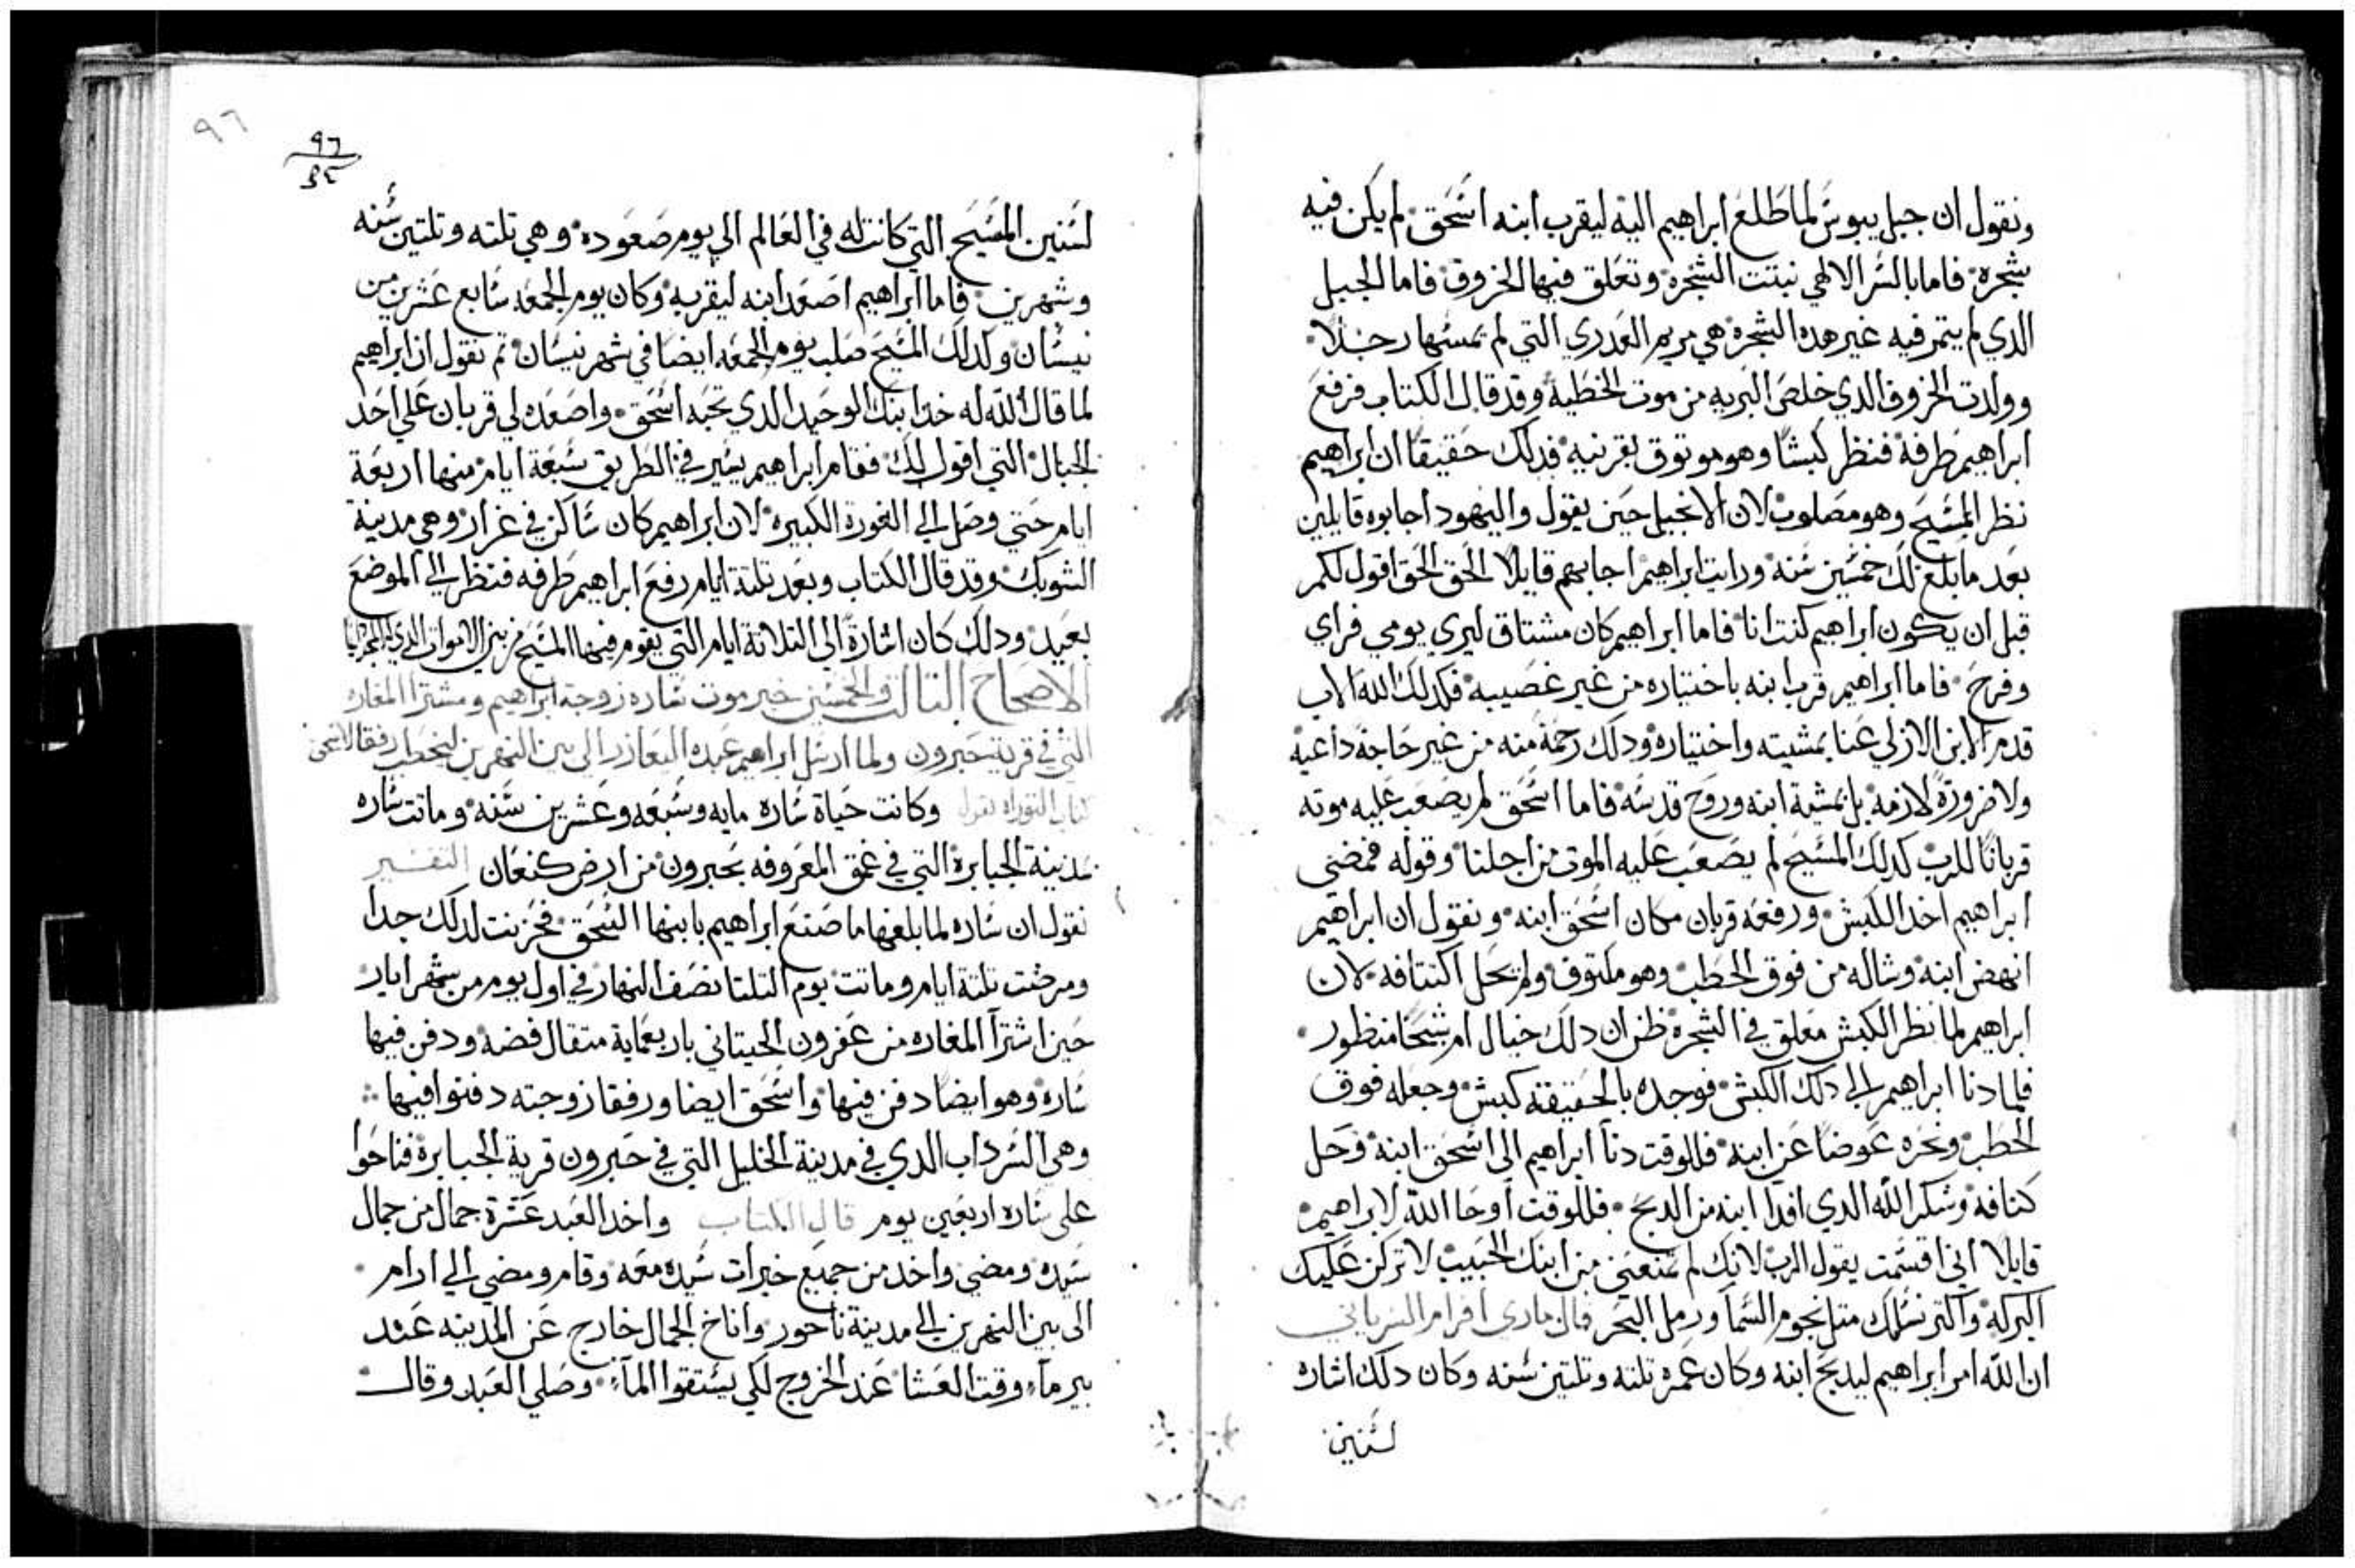 ونقول ان جبل يبوس لما طلع ابراهيم اليه ليقرب ابنه اسحق لم يكن فيه
شجره فاما بالسر الالهي نبتت الشجره وتعلق فيها الخروف فاما الجبل
الدي لم يتمر فيه غير هده الشجره هي مريم العدري التي لم تمسها رجلا
وولدت الخروف الدي خلص البريه من موت الخطيه وقد قال الكتاب فرفع
ابراهيم طرفه فنظر كبشا وهو موتوق بقرنيه فدلك حقيقا ان ابراهيم
نظر المسيح وهو مصلوب لان الانجيل حين يقول واليهود اجابوه قايلين
بعد ما بلغ لك خمسين سنه ورايت ابراهيم اجابهم قايلا الحق الحق اقول لكم
قبل ان يكون ابراهيم كنت انا فاما ابراهيم كان مشتاق ليري يومي فراي
وفرح فاما ابراهيم قرب ابنه باختياره من غير غصيبه فكدلك الله الاب
قدم الابن الازلي عنا بمشيته واختياره ودلك رحمة منه من غير حاجة داعيه
ولا ضرورة لازمه بل بمشية ابنه وروح قدسه فاما اسحق لم يصعب عليه موته
قربانا للرب كدلك المسيح لم يصعب عليه الموت من اجلنا وقوله فمضي
ابراهيم اخد الكبش ورفعه قربان مكان اسحق ابنه ونقول ان ابراهيم
انهض ابنه وشاله من فوق الحطب وهو مكتوف ولم يحل اكتتافه لان
ابراهيم لما نظر الكبش معلق في الشجره ظن ان دلك خيال ام شبحا منظور
فلما دنا ابراهيم الي دلك الكبش فوجده بالحقيقة كبش وجعله فوق
الحطب ونحره عوضا عن ابنه فللوقت دنا ابراهيم الي اسحق ابنه وحل
كتافه وشكر الله الدي افدا ابنه من الدبح فللوقت اوحا الله لابراهيم
قايلا اني اقسمت يقول الرب لانك لم تمنعني من ابنك الحبيب لاتركن عليك
البركه واكتر نسلك متل نجوم السما ورمل البحر قال ماري افرام السرياني
ان الله امر ابراهيم ليدبح ابنه وكان عمره تلته وتلتين سنه وكان دلك اشاره
لسنين
٩٦
٩٦
لسنين المسيح التي كانت له في العالم الي يوم صعوده وهي تلته وتلتين سنه
وشهرين فاما ابراهيم اصعد ابنه ليقربه وكان يوم الجمعه سابع عشرين من
نيسان وكدلك المسيح صلب يوم الجمعه ايضا في شهر نيسان تم نقول ان ابراهيم
لما قال الله له خد ابنك الوحيد الدي تحبه اسحق واصعده لي قربان علي احد
الجبال التي اقول لك فقام ابراهيم يسير في الطريق سبعة ايام منها اربعة
ايام حتي وصل الي الغورة الكبيره لان ابراهيم كان ساكن في غرار وهي مدينة
الشوبك وقد قال الكتاب وبعد تلتة ايام رفع ابراهيم طرفه فنظر الي الموضع
بعيد ودلك كان اشارة الي التلاتة ايام التي يقوم فيها المسيح من بين الاموات
الاصحاح التالت والخمسين خبر موت ساره زوجة ابراهيم ومشترا المغاره
التي في قرية حبرون ولما ارسل ابراهيم عبده اليعازر الي بين النهرين ليخطب رفقا لاسحق
كتاب التوراه تقول وكانت حياة ساره مايه وسبعه وعشرين سنه وماتت ساره
بمدينة الجبابرة التي في عمق المعروفه بحبرون من ارض كنعان التفسير
نقول ان ساره لما بلغها ما صنع ابراهيم بابنها اسحق فحزنت لدلك جدا
ومرضت تلتة ايام وماتت يوم التلتا نصف النهار في اول يوم من شهر ايار
حين اشترا المغاره من عفرون الحيتاني باربعماية متقال فضه ودفن فيها
ساره وهو ايضا دفن فيها واسحق ايضا ورفقا زوجته دفنوا فيها
وهي السرداب الدي في مدينة الخليل التي في حبرون قرية الجبابرة فناحوا
علي ساره اربعين يوم قال الكتاب واخد العبد عشرة جمال من جمال
سيده ومضي واخد من جميع خيرات سيده معه وقام ومضي الي ارام
الي بين النهرين الي مدينة ناحور واناخ الجمال خارج عن المدينه عند
بير مآء وقت العشا عند الخروج لكي يستقوا المآء وصلي العبد وقال